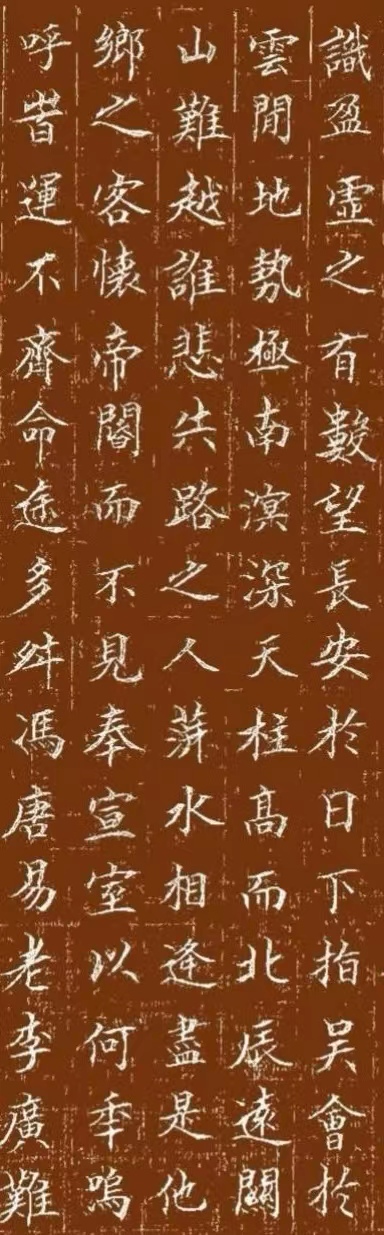 識盈虛之有數望長安於日下指吳會於
雲間地勢極南溟深天柱高而北辰遠關
山難越誰悲失路之人萍水相逢盡是他
鄉之客懷帝閽而不見奉宣室以何秊嗚
呼旹運不齊命途多舛馮唐易老李廣難